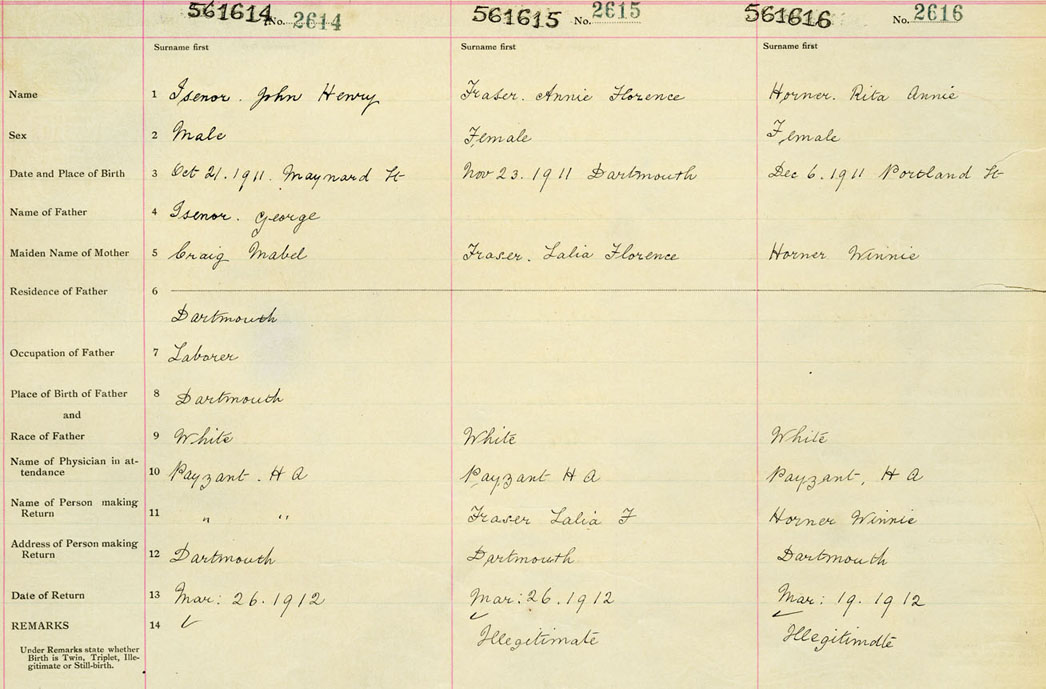 561614 No. 2614 561615 No. 2615 561616 No. 2616
Surname first Surname first Surname first
Name 1 Isenor. John Henry Fraser. Annie Florence Horner. Rita Annie
Sex 2 Male Female Female
Date and Place of Birth 3 Oct 21. 1911. Maynard St Nov 23. 1911 Dartmouth Dec 6. 1911 Portland St
Name of Father 4 Isenor. George
Maiden Name of Mother 5 Craig Mabel Fraser. Lalia Florence Horner Winnie
Residence of Father 6
Dartmouth
Occupation of Father 7 Laborer
Place of Birth of Father 8 Dartmouth
and
Race of Father 9 White White White
Name of Physician in at-
tendance 10 Payzant. H A Payzant H A Payzant, H A
Name of Person making
Return 11 " " Fraser Lalia F Horner Winnie
Address of Person making
Return 12 Dartmouth Dartmouth Dartmouth
Date of Return 13 Mar: 26. 1912 Mar: 26. 1912 Mar: 19. 1912
REMARKS 14 ✓ ✓ Illegitimate ✓ Illegitimate
Under Remarks state whether
Birth is Twin, Triplet, Ille-
gitimate or Still-birth.